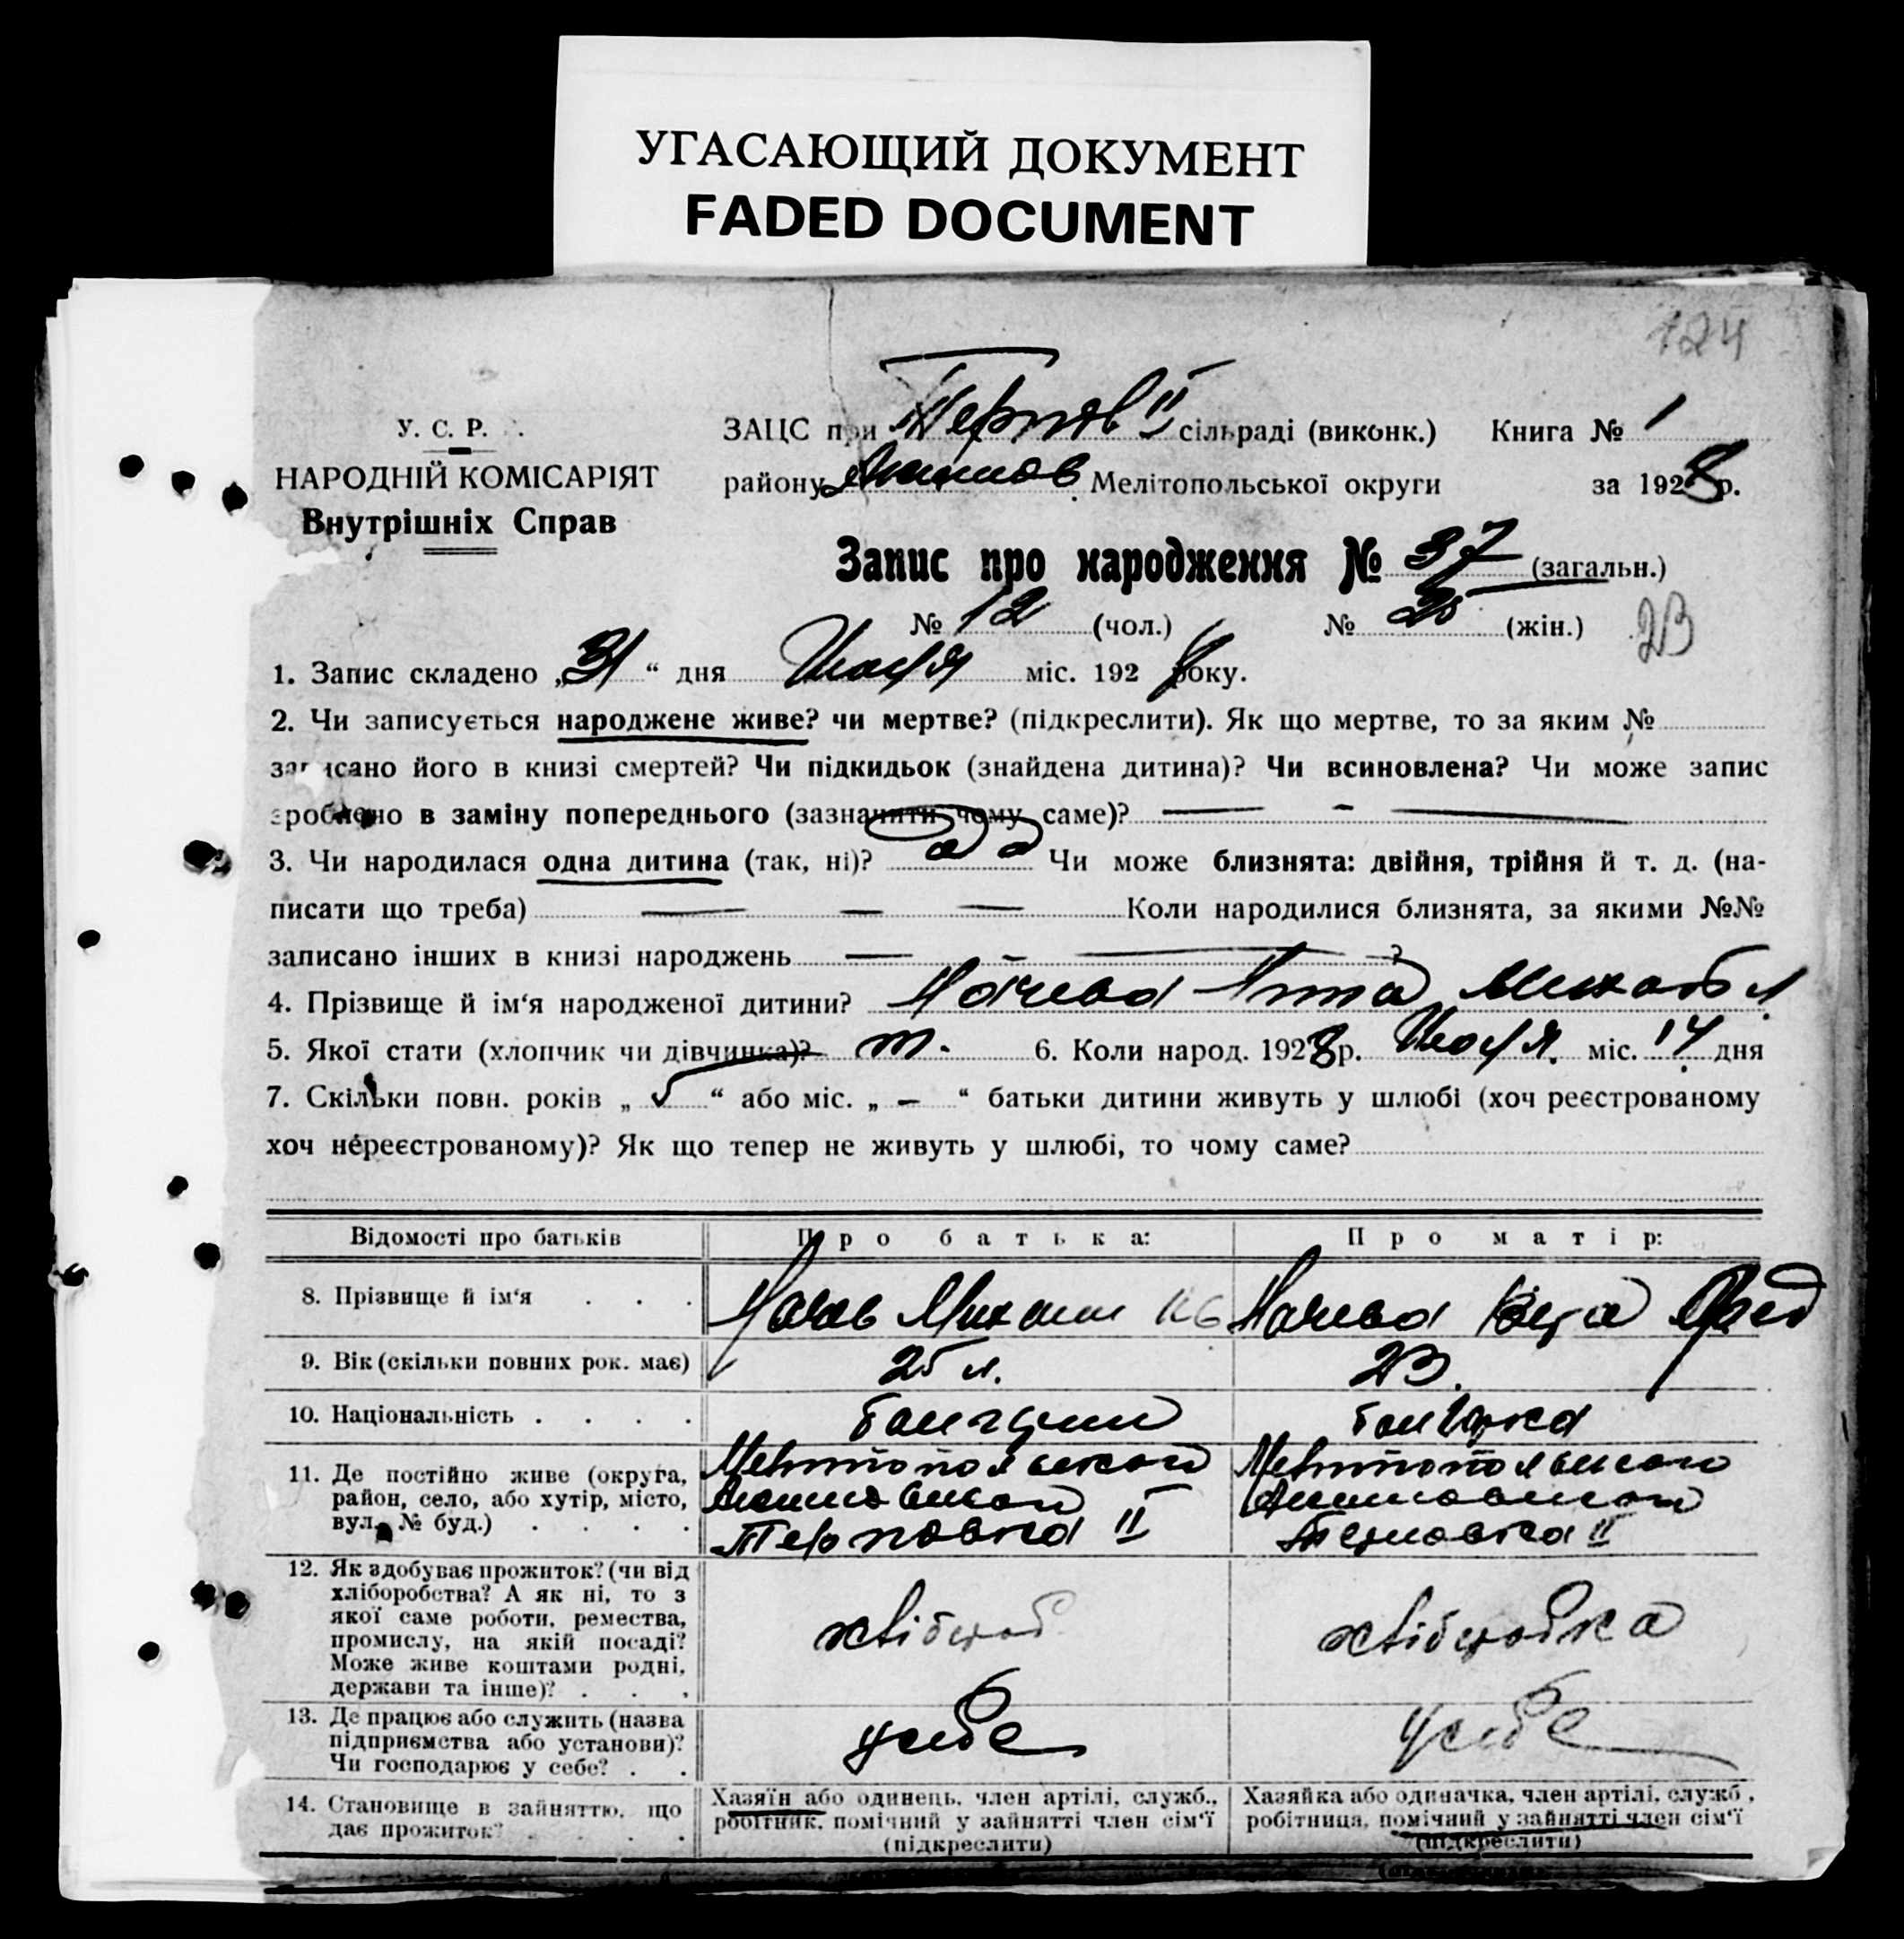 УГАСАЮЩИЙ ДОКУМЕНТ
FADED DOCUMENT
124
У. С. Р.
НАРОДНІЙ КОМІСАРІЯТ
Внутрішніх Справ
ЗАЦС при Терпов II сільраді (виконк.) Книга № 1
району Якимов Мелітопольської округи за 1928 р.
Запис про народження № 37 (загальн.)
№ 12 (чол.) № 25 (жін.) 23
1. Запис складено „31“ дня міс. 1928 року.
2. Чи записується народжене живе? чи мертве? (підкреслити). Як що мертве, то за яким №
записано його в книзі смертей? Чи підкидьок (знайдена дитина)? Чи всиновлена? Чи може запис
зроблено в заміну попереднього (зазначити чому саме)? — - —
3. Чи народилася одна дитина (так, ні)? Чи може близнята: двійня, трійня й т. д. (на-
писати що треба) — — — Коли народилися близнята, за якими №№
записано інших в книзі народжень — - — ?
4. Прізвище й ім‘я народженої дитини?
5. Якої стати (хлопчик чи дівчинка)? 6. Коли народ. 1928 р. міс. 14 дня
7. Скільки повн. років „ “ або міс. „ – “ батьки дитини живуть у шлюбі (хоч реєстрованому
хоч нереєстрованому)? Як що тепер не живуть у шлюбі, то чому саме?
Відомості про батьків Про батька: Про матір:
8. Прізвище й ім‘я . . .
9. Вік (скільки повних рок. має) 25 л. 23.
10. Національність . . . . болгарин болгарка
11. Де постійно живе (округа,
район, село, або хутір, місто,
вул. № буд.) . . . .
Мелитопольского Мелитопольского
Акимовского Акимовского
Терповка II Терновка II
12. Як здобуває прожиток? (чи від
хліборобства? А як ні, то з
якої саме роботи, ремества,
промислу, на якій посаді?
Може живе коштами родні,
держави та інше)? . . .
хлібороб хліборобка
13. Де працює або служить (назва
підприємства або установи)?
Чи господарює у себе? . .
у себе у себе
14. Становище в зайняттю, що
дає прожиток? . . . .
Хазяїн або одинець, член артілі, служб.,
робітник, помічний у зайнятті член сім‘ї
(підкреслити)
Хазяйка або одиначка, член артілі, служб.,
робітниця, помічний у зайнятті член сім‘ї
(підкреслити)